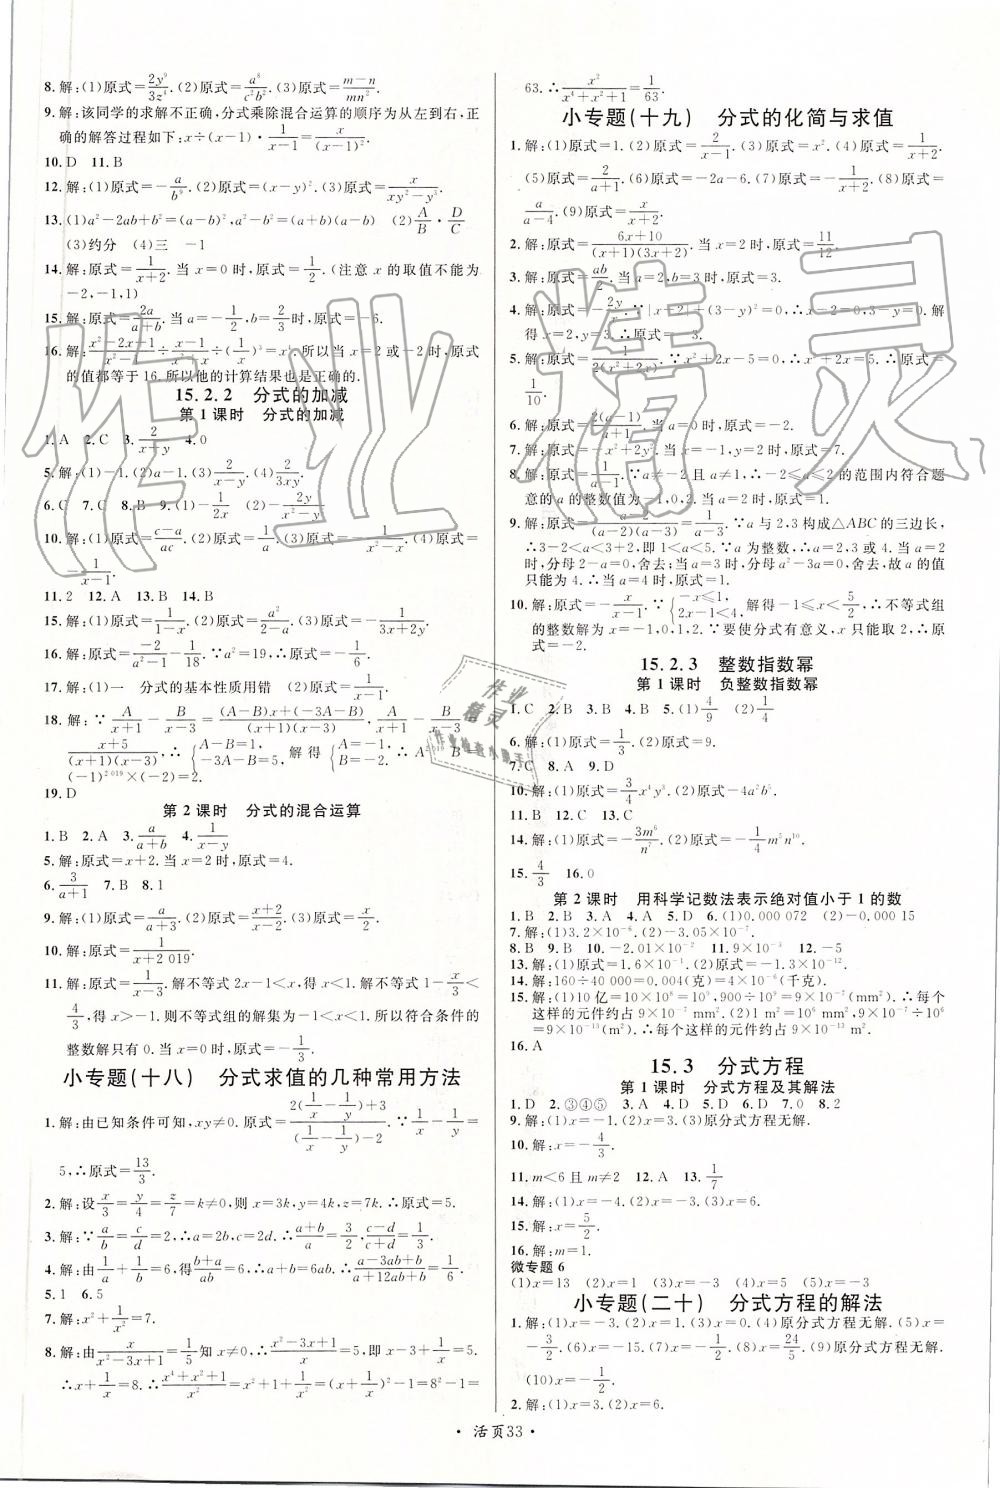 8. 解:(1)原式=2y⁹/3z⁴. (2)原式=a⁸/c²b². (3)原式=(m-n)/mn².
9. 解:该同学的求解不正确,分式乘除混合运算的顺序为从左到右,正
确的解答过程如下:x÷(x-1)·1/(x-1)=x/(x-1)².
10. D 11. B
12. 解:(1)原式=-a/b⁹. (2)原式=(x-y)². (3)原式=x/(xy²-y³).
13. (1)a²-2ab+b²=(a-b)²,a²-b²=(a+b)(a-b) (2)A/B·D/C
(3)约分 (4)三 -1
14. 解:原式=1/(x+2). 当 x=0 时,原式=1/2. (注意 x 的取值不能为
-2,-1,1)
15. 解:原式=2a/(a+b). 当 a=-1/2,b=2/3时,原式=-6.
所以当 x=2 或-2 时,原式
的值都等于 16. 所以他的计算结果也是正确的.
15.2.2 分式的加减
第 1 课时 分式的加减
1. A 2. C 3. 2/(x+y) 4. 0
5. 解:(1)-1. (2)a-1. (3)2/(x-y). (4)2/3xy.
6. C 7. C 8. B 9. (1)-1/2x (2)-2y/(x²-y²)
10. 解:(1)原式=(c-a)/ac.
11. 2 12. A 13. B 14. B
15. 解:(1)原式=1/(1-x). (2)原式=a²/(2-a). (3)原式=-1/(3x+2y).
16. 解:原式=-2/(a²-1). ∵a²=19,∴原式=-1/9.
17. 解:(1)一 分式的基本性质用错 (2)原式=1/(x-1).
18. 解:∵A/(x+1)-B/(x-3)=((A-B)x+(-3A-B))/((x+1)(x-3)),A/(x+1)-B/(x-3)=
(x+5)/((x+1)(x-3)),∴{A-B=1, -3A-B=5. 解得{A=-1, B=-2.
19. D
第 2 课时 分式的混合运算
1. B 2. A 3. a/(a+b) 4. 1/(x-y)
5. 解:原式=x+2. 当 x=2 时,原式=4.
6. 3/(a+1) 7. B 8. 1
9. 解:(1)原式=a/(a+3). (2)原式=(x+2)/(x-2).
10. 解:原式=1/(x+2 019).
11. 解:原式=1/(x-3). 解不等式 2x-1<x,得 x<1. 解不等式-1/3x<
4/3,得 x>-1. 则不等式组的解集为-1<x<1. 所以符合条件的
整数解只有 0. 当 x=0 时,原式=-1/3.
小专题(十八) 分式求值的几种常用方法
1. 解:由已知条件可知,xy≠0. 原式=(2(1/x-1/y)+3)/((1/x-1/y)-2)
5,∴原式=13/3.
2. 解:设x/3=y/4=z/7=k≠0,则 x=3k,y=4k,z=7k. ∴原式=5.
3. 解:∵a/b=c/d=2,∴a=2b,c=2d. ∴(a+b)/a=3/2,(c+d)/(c-d)=3/1=3.
4. 解:由1/a+1/b=6,得(b+a)/ab=6. ∴a+b=6ab. ∴(a-3ab+b)/(a+12ab+b)=1/6.
5. 1 6. 5
7. 解:x²+1/x²=7.
8. 解:由x/(x²-3x+1)=1/5知 x≠0,∴(x²-3x+1)/x=5,即 x-3+1/x=5.
∴x+1/x=8. ∴(x⁴+x²+1)/x²=x²+1+1/x²=(x+1/x)²-1=8²-1=
63. ∴x²/(x⁴+x²+1)=1/63.
小专题(十九) 分式的化简与求值
1. 解:(1)原式=1. (2)原式=2/(x-1). (3)原式=x². (4)原式=1/(x+2).
(5)原式=2/(a+1). (6)原式=-2a-6. (7)原式=-1/2. (8)原式=
a/(a-4). (9)原式=x/(x+2).
2. 解:原式=(6x+10)/((x+1)(3x+2)). 当 x=2 时,原式=11/12.
3. 解:原式=ab/2. 当 a=2,b=3 时,原式=3.
4. 解:原式=-2y/x. ∵|x-2|+(3-y)²=0,∴x-2=0,3-y=0. 解
得 x=2,y=3. ∴原式=-3.
5. 解:原式=1/(2(x²+2x)). ∵x²+2x-5=0,∴x²+2x=5. ∴原式=
1/10.
6. 解:原式=2(a-1)/(a+1). 当 a=0 时,原式=-2.
8. ∵a≠-2 且 a≠1,∴-2≤a≤2 的范围内符合题
意的 a 的整数值为-1,0,2.
∵a 与 2,3 构成△ABC 的三边长,
∴3-2<a<3+2,即 1<a<5. ∵a 为整数,∴a=2,3,4. 当 a=2
时,分母 2-a=0,舍去;当 a=3 时,分母 a²-3a=0,舍去;故 a 的值
只能为 4. ∴当 a=4 时,原式=1.
10. 解:原式=-x/(x-1). ∵{-x≤1, 2x-1<4, 解得-1≤x<5/2,∴不等式组
的整数解为-1,0,1,2. ∵要使分式有意义,x 只能取 2. ∴原
式=-2.
15.2.3 整数指数幂
第 1 课时 负整数指数幂
1. C 2. B 3. B 4. B 5. (1)4/9 (2)1/4
6. 解:(1)原式=1/3. (2)原式=9.
7. C 8. A 9. D
10. 解:(1)原式=1/3x⁴y³. (2)原式=-4a²b⁵.
11. B 12. C 13. C
14. 解:(1)原式=-3m⁶/n⁷. (2)原式=-1/4m⁵n¹⁰.
15. 4/3 16. 0
第 2 课时 用科学记数法表示绝对值小于 1 的数
1. B 2. B 3. B 4. A 5. D 6. (1)0.000 072 (2)-0.000 15
7. 解:(1)3.2×10⁻⁶. (2)-3.05×10⁻⁷.
8. B 9. B 10. -2.01×10⁻² 11. 9×10⁻² 12. -5
13. 解:(1)原式=1.6×10⁻¹. (2)原式=-1.3×10⁻¹².
14. 解:160÷40 000=0.004(克)=4×10⁻⁶(千克).
15. 解:(1)10 亿=10×10⁸=10⁹,900÷10⁹=9×10⁻⁷(mm²). ∴每个
这样的元件约占 9×10⁻⁷ mm². (2)1 m²=10⁶ mm²,9×10⁻⁷÷
10⁶=9×10⁻¹³(m²). ∴每个这样的元件约占 9×10⁻¹³ m².
16. A
15.3 分式方程
第 1 课时 分式方程及其解法
1. D 2. ③④⑤ 3. A 4. D 5. D 6. D 7. 0 8. 2
9. 解:(1)x=-1. (2)x=3. (3)原分式方程无解.
10. 解:x=-4/3.
11. m<6 且 m≠2 12. A 13. 1/7
14. 解:(1)x=-4. (2)x=1. (3)x=6.
15. 解:x=5/2.
16. 解:m=1.
微专题 6
(1)x=13 (2)x=1 (3)x=1 (4)x=-1
小专题(二十) 分式方程的解法
1. 解:(1)x=-3. (2)x=1. (3)x=0. (4)原分式方程无解. (5)x=
-3/2. (6)x=-15. (7)x=-1/2. (8)x=24/5. (9)原分式方程无解.
(10)x=-1/2.
2. 解:(1)x=3. (2)x=6.
· 活页33 ·
作业精灵